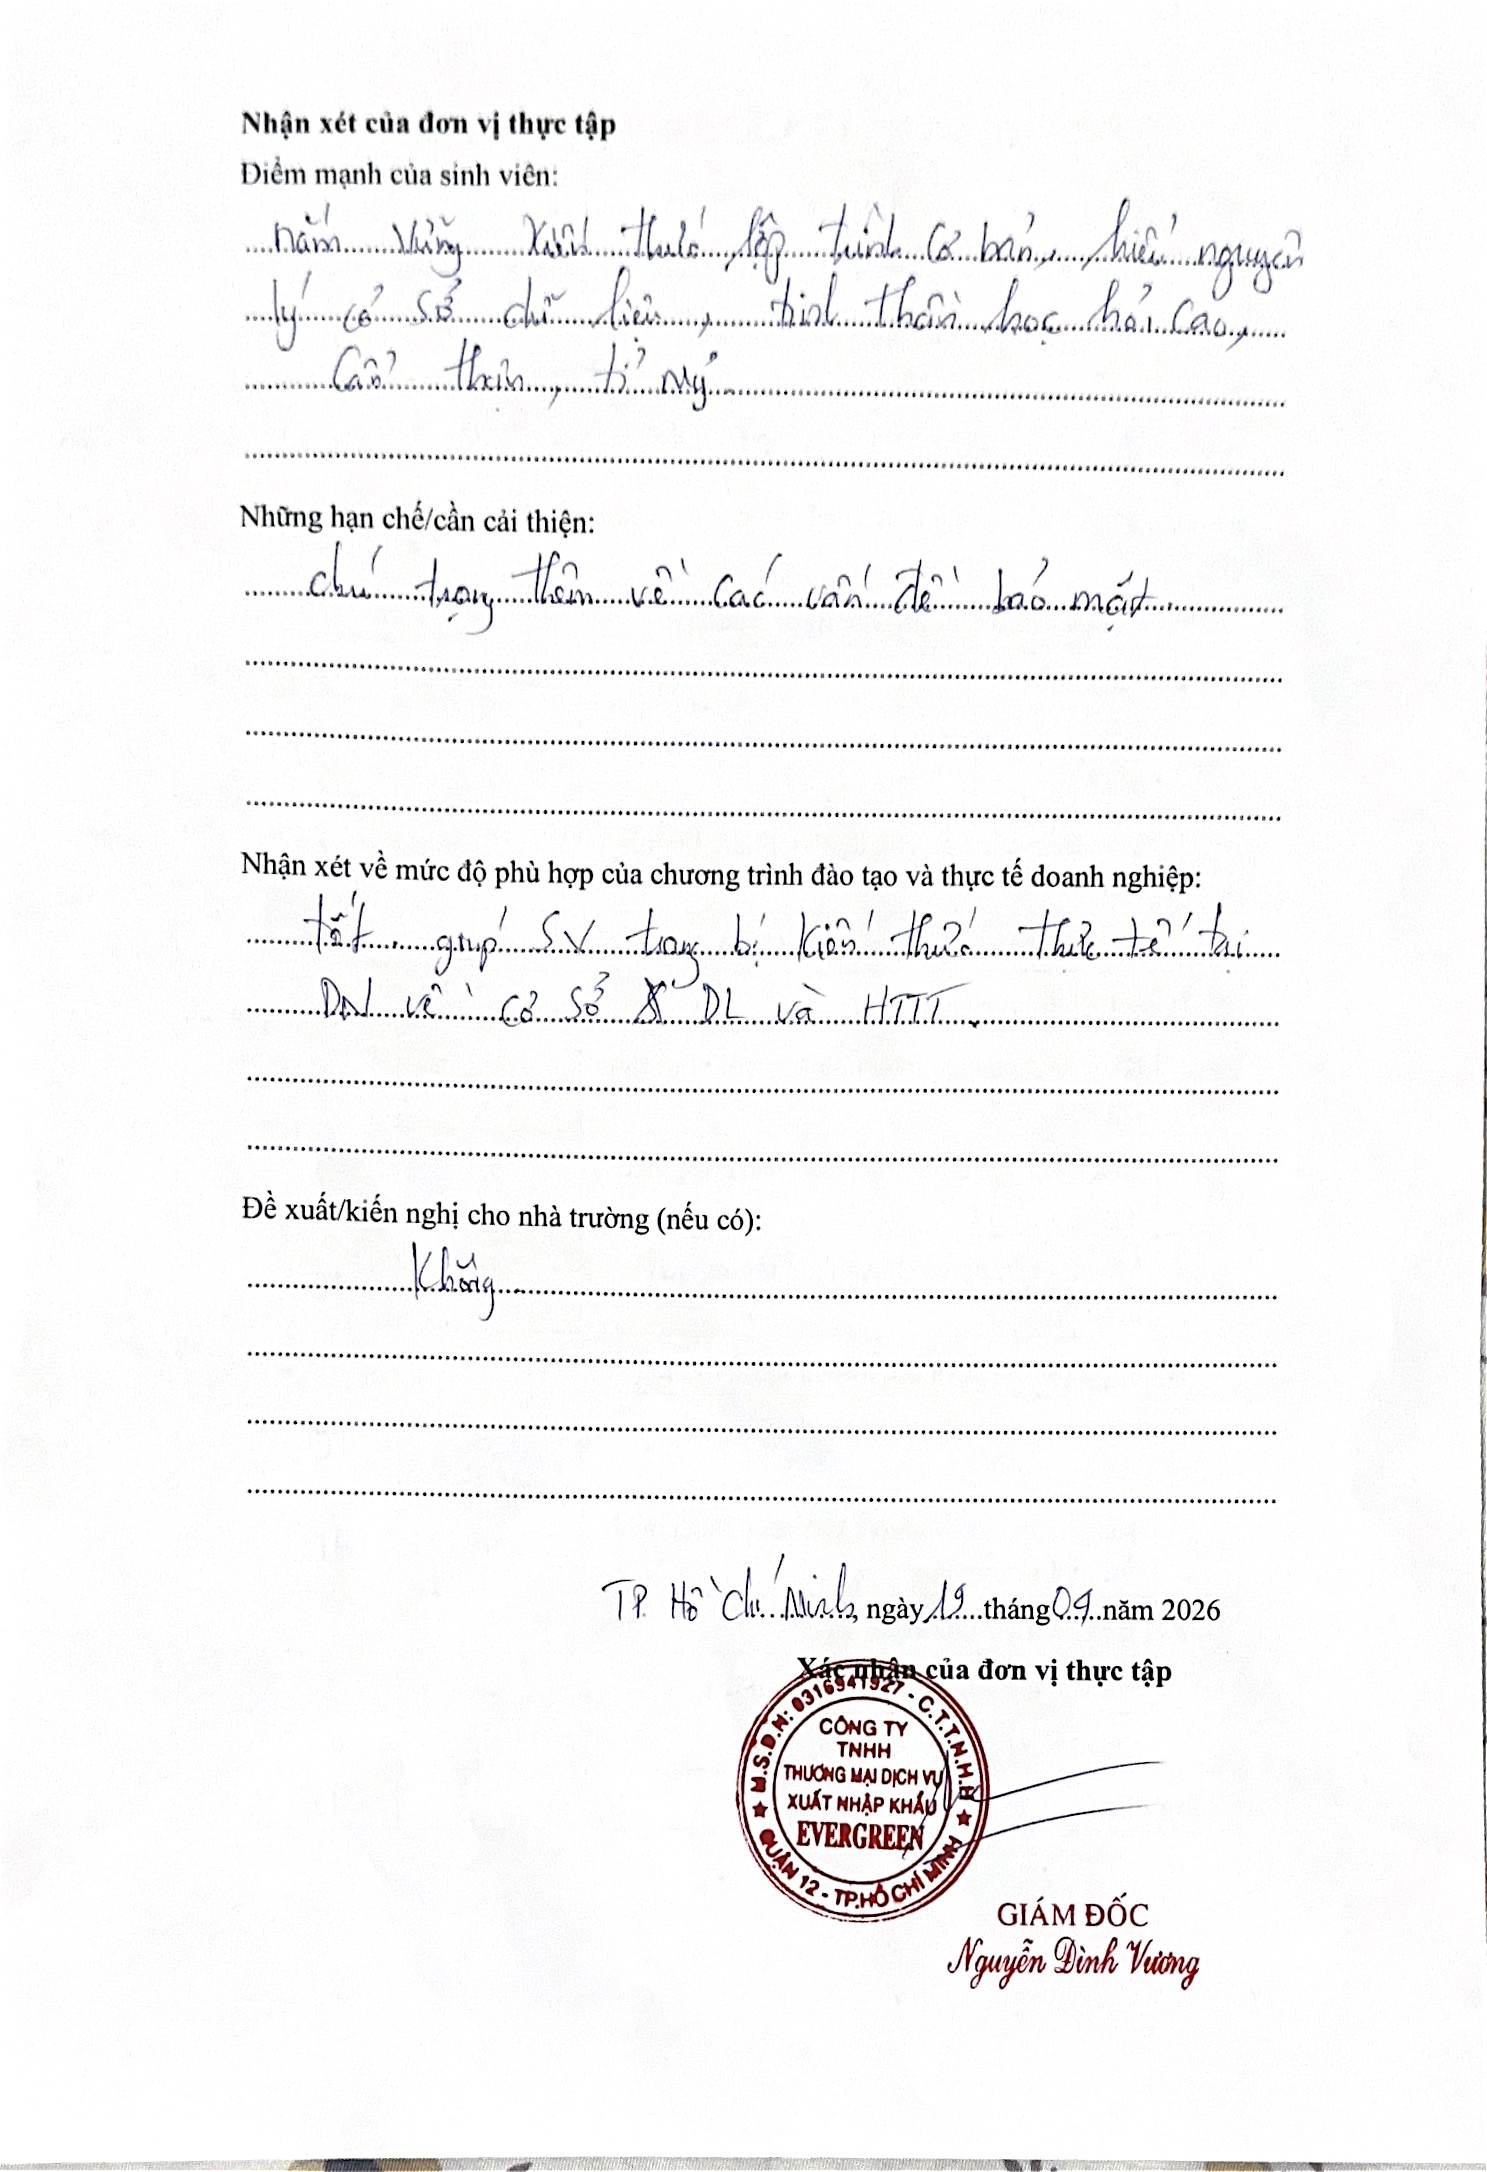 Nhận xét của đơn vị thực tập
Điểm mạnh của sinh viên:
nắm vững kiến thức lập trình cơ bản, hiểu nguyên
lý cơ sở dữ liệu, tinh thần học hỏi cao,
Cẩn thận, tỉ mỷ
Những hạn chế/cần cải thiện:
chú trọng thêm về các vấn đề bảo mật
Nhận xét về mức độ phù hợp của chương trình đào tạo và thực tế doanh nghiệp:
tốt, giúp SV trang bị kiến thức thực tế tại
DN về cơ sở DL và HTTT.
Đề xuất/kiến nghị cho nhà trường (nếu có):
Không
TP. Hồ Chí Minh, ngày 19 tháng 04 năm 2026
Xác nhận của đơn vị thực tập
M.S.D.N: 0316941927 - C.T.T.N.H.H
CÔNG TY
TNHH
THƯƠNG MẠI DỊCH VỤ
XUẤT NHẬP KHẨU
EVERGREEN
QUẬN 12 - TP.HỒ CHÍ MINH
GIÁM ĐỐC
Nguyễn Đình Vương